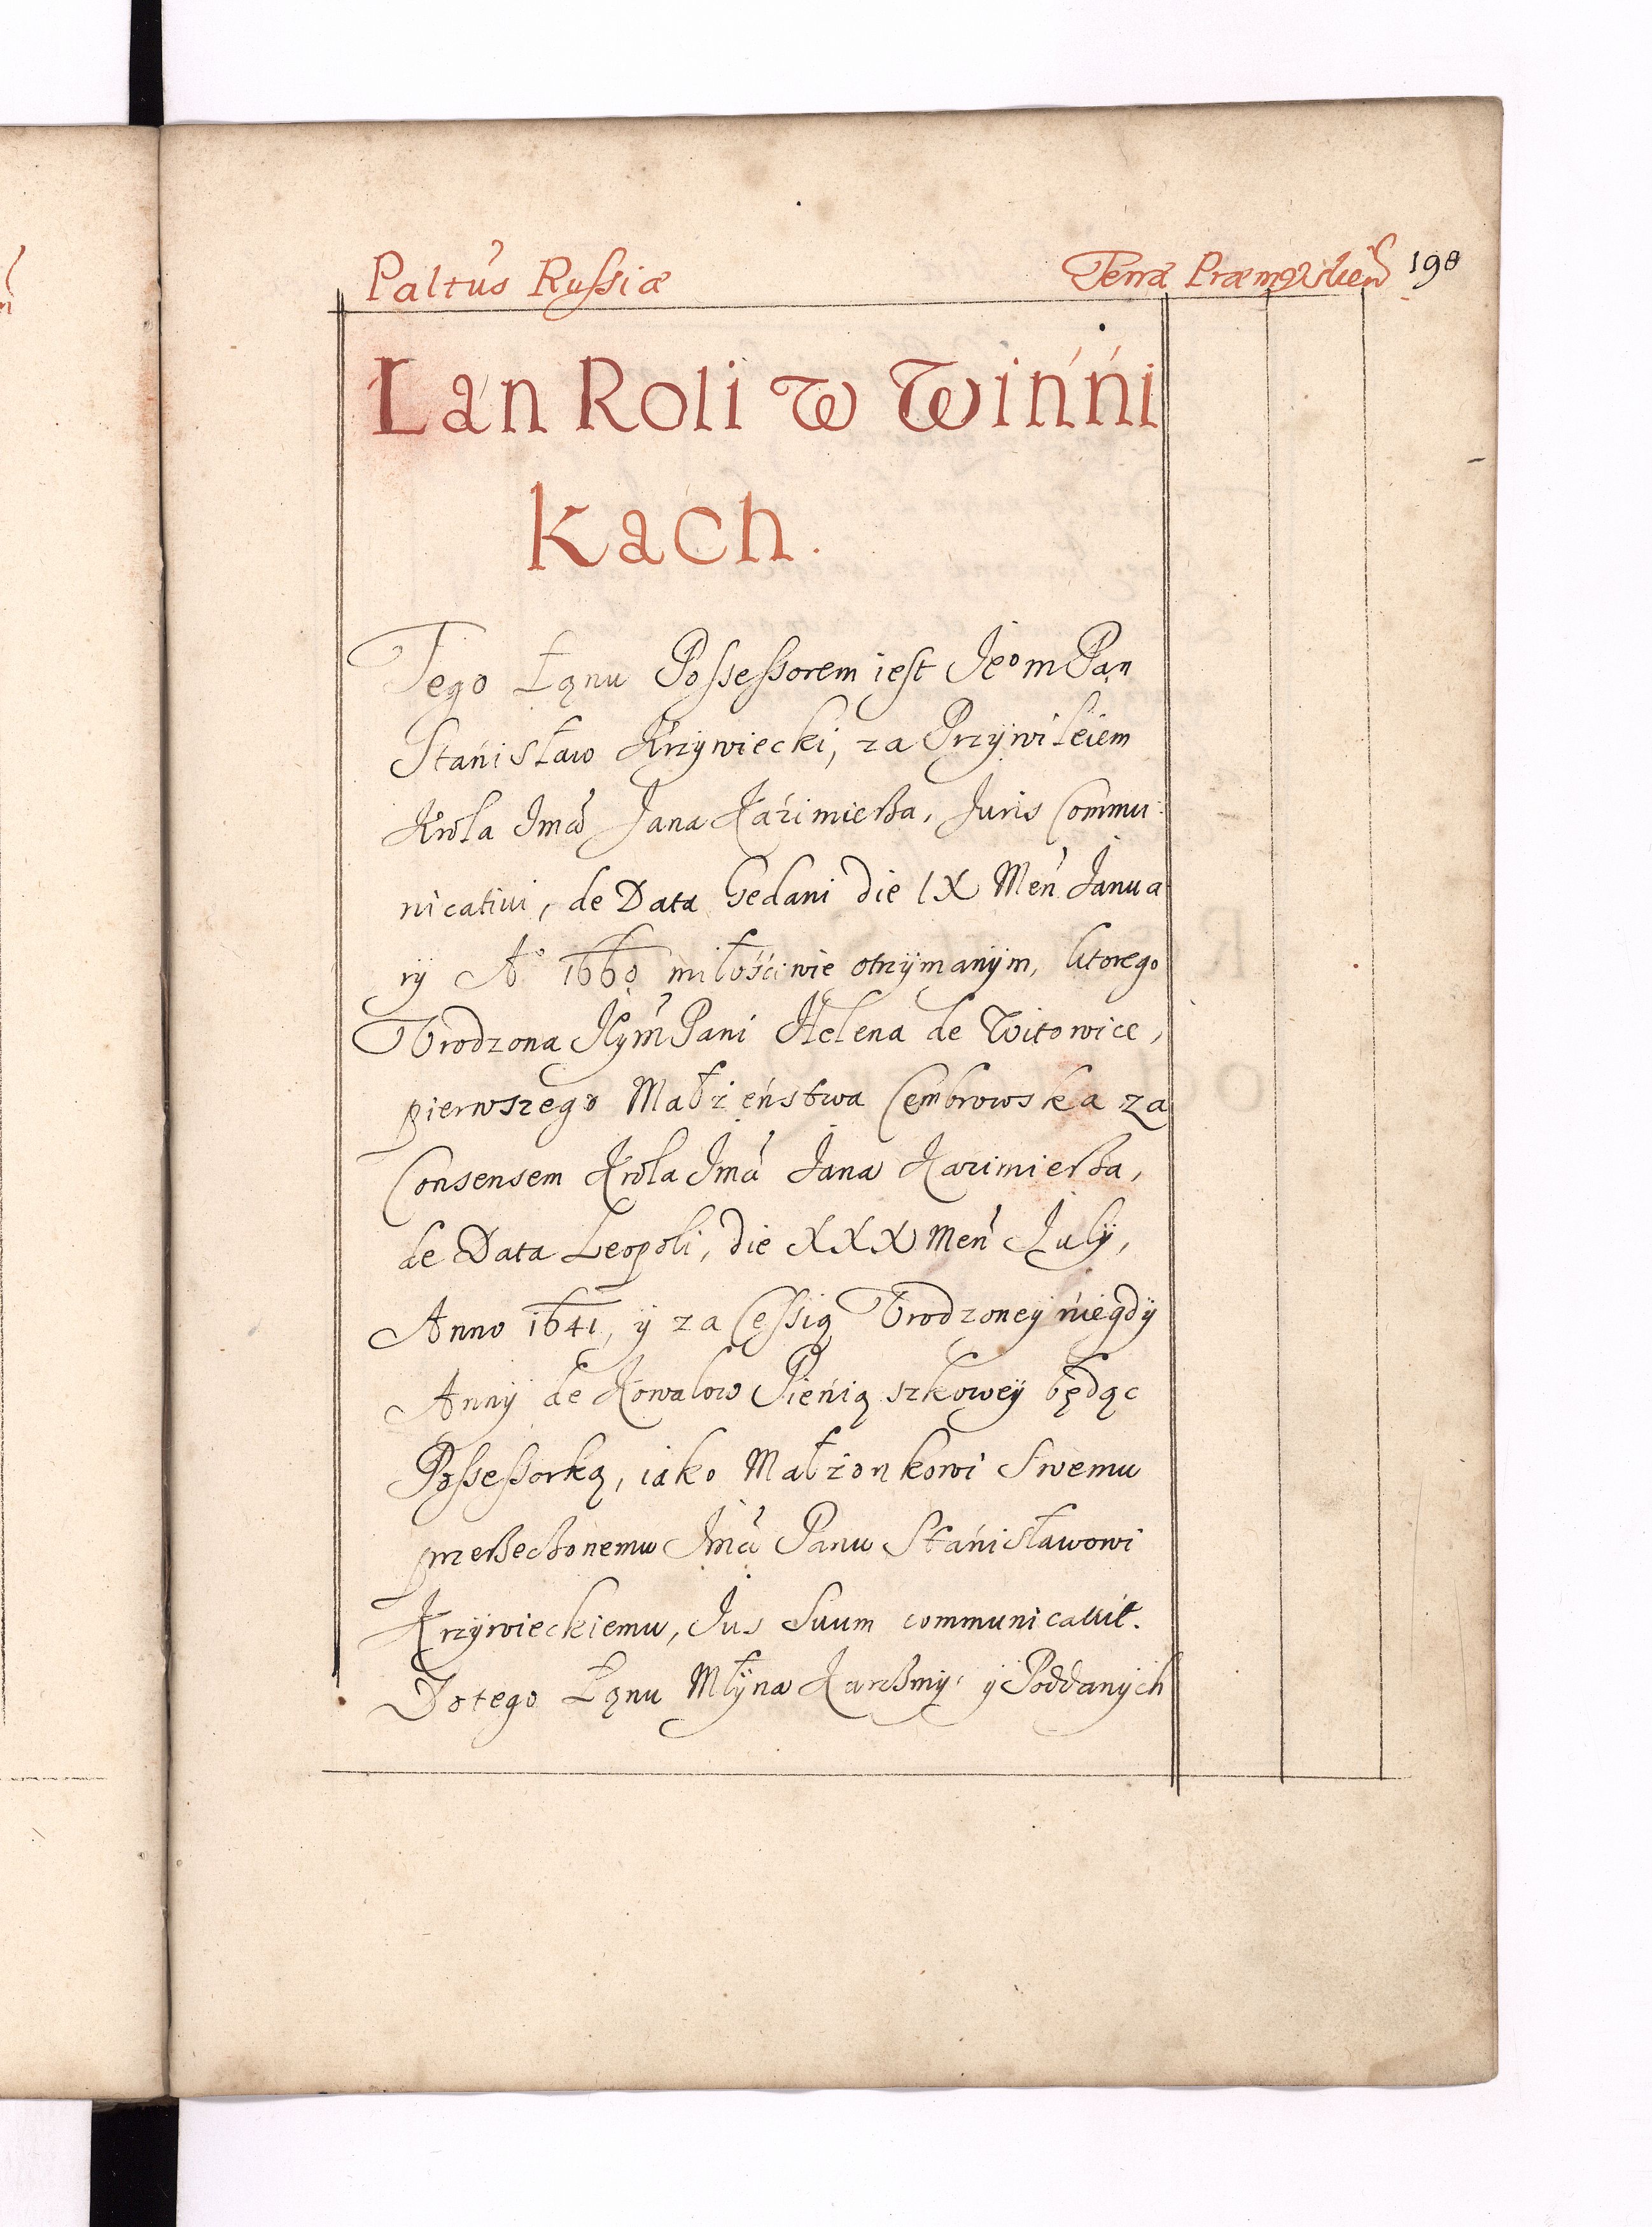 Paltus Russiæ Terra Præmyslieñ 198
Łan Roli w Winńi
kach.
Tego Łąnu Possessorem iest Jeom Pan
Stanisław Krzywiecki, za Przywileiem
Krola Jmci Jana Kaźimierza, Juris Commu:
nicativi, de Data Gedani die IX Men Janua
rÿ A° 1660 miłościwie otrzÿmanÿm, ktorego
Vrodzona Jeÿm Pani Helena de Witowice,
pierwszego Małżeństwa Cembrowska za
Consensem Krola Jmci Jana Kazimierza,
de Data Leopoli, die XXX Men Julÿ,
Anno 1641, ÿ za Cessią Vrodzoneÿ niegdÿ
Annÿ de Kowalow Pieniąszkoweÿ będąc
Possessorką, iako Małżonkowi Swemu
przerzeczonemu Jmci Panu Stanisławowi
Krzÿwieckiemu, Jus Suum communicavit.
Do tego Łąnu Młÿna Karczmÿ, ÿ Poddanÿch